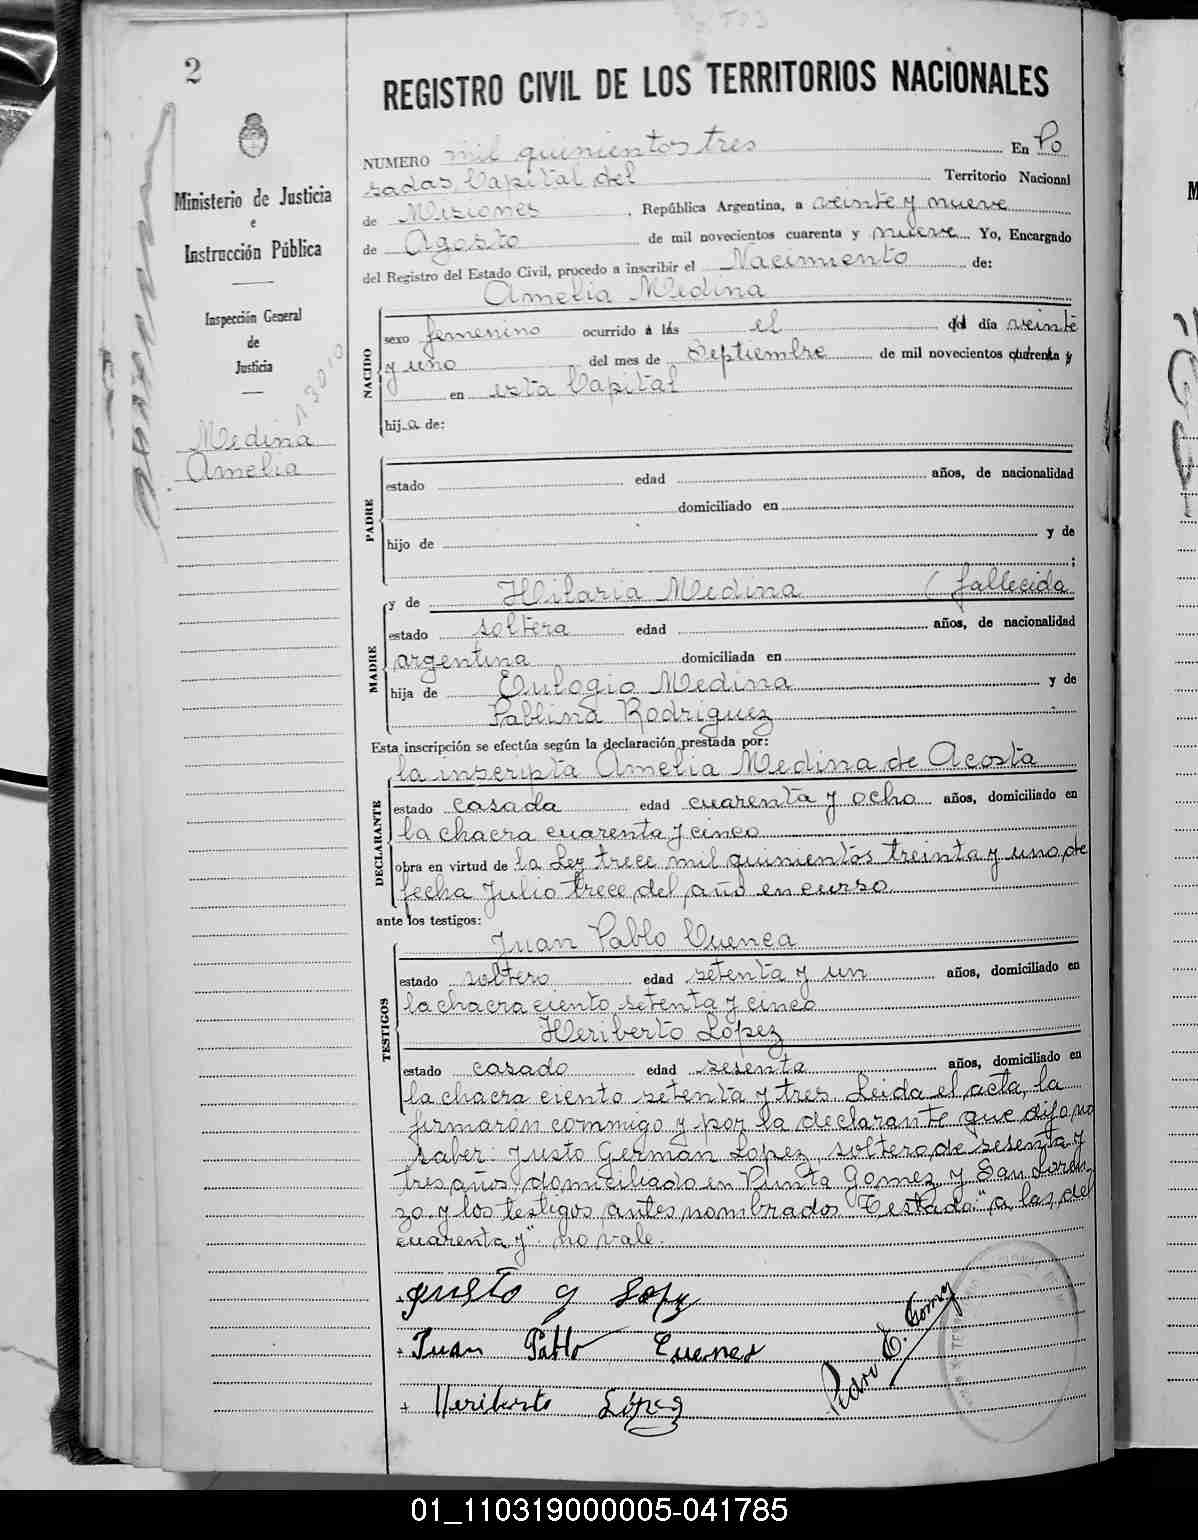 2
REGISTRO CIVIL DE LOS TERRITORIOS NACIONALES
Ministerio de Justicia
e
Instrucción Pública
Inspección General
de
Justicia
Medina
Amelia
NUMERO mil quinientos tres En Po
sadas, Capital del Territorio Nacional
de Misiones, República Argentina, a veinte y nueve
de Agosto de mil novecientos cuarenta y nueve Yo, Encargado
del Registro del Estado Civil, procedo a inscribir el Nacimiento de:
Amelia Medina
NACIDO
sexo femenino ocurrido a las el del día veinte
y uno del mes de Septiembre de mil novecientos cuarenta y
en esta Capital
hija de:
PADRE
estado edad años, de nacionalidad
domiciliado en
hijo de y de
;
MADRE
y de Hilaria Medina (fallecida
estado soltera edad años, de nacionalidad
argentina domiciliada en
hija de Eulogio Medina y de
Pablina Rodriguez
Esta inscripción se efectúa según la declaración prestada por:
la inscripta Amelia Medina de Acosta
DECLARANTE
estado casada edad cuarenta y ocho años, domiciliado en
la chacra cuarenta y cinco
obra en virtud de la Ley trece mil quinientos treinta y uno, de
fecha Julio trece del año en curso
ante los testigos:
TESTIGOS
Juan Pablo Cuenca
estado soltero edad setenta y un años, domiciliado en
la chacra ciento setenta y cinco
Heriberto López
estado casado edad sesenta años, domiciliado en
la chacra ciento setenta y tres. Leida el acta, la
firmaron conmigo y por la declarante que dijo no
saber: Justo German Lopez, soltero de sesenta y
tres años, domiciliado en Punta Gomez y San Loren
zo y los testigos antes nombrados. Testado: "a las, del
cuarenta y" no vale.
Justo g Lopz
Juan Pablo Cuenca
Heriberto López
Pedro E. Gomez
01_110319000005-041785